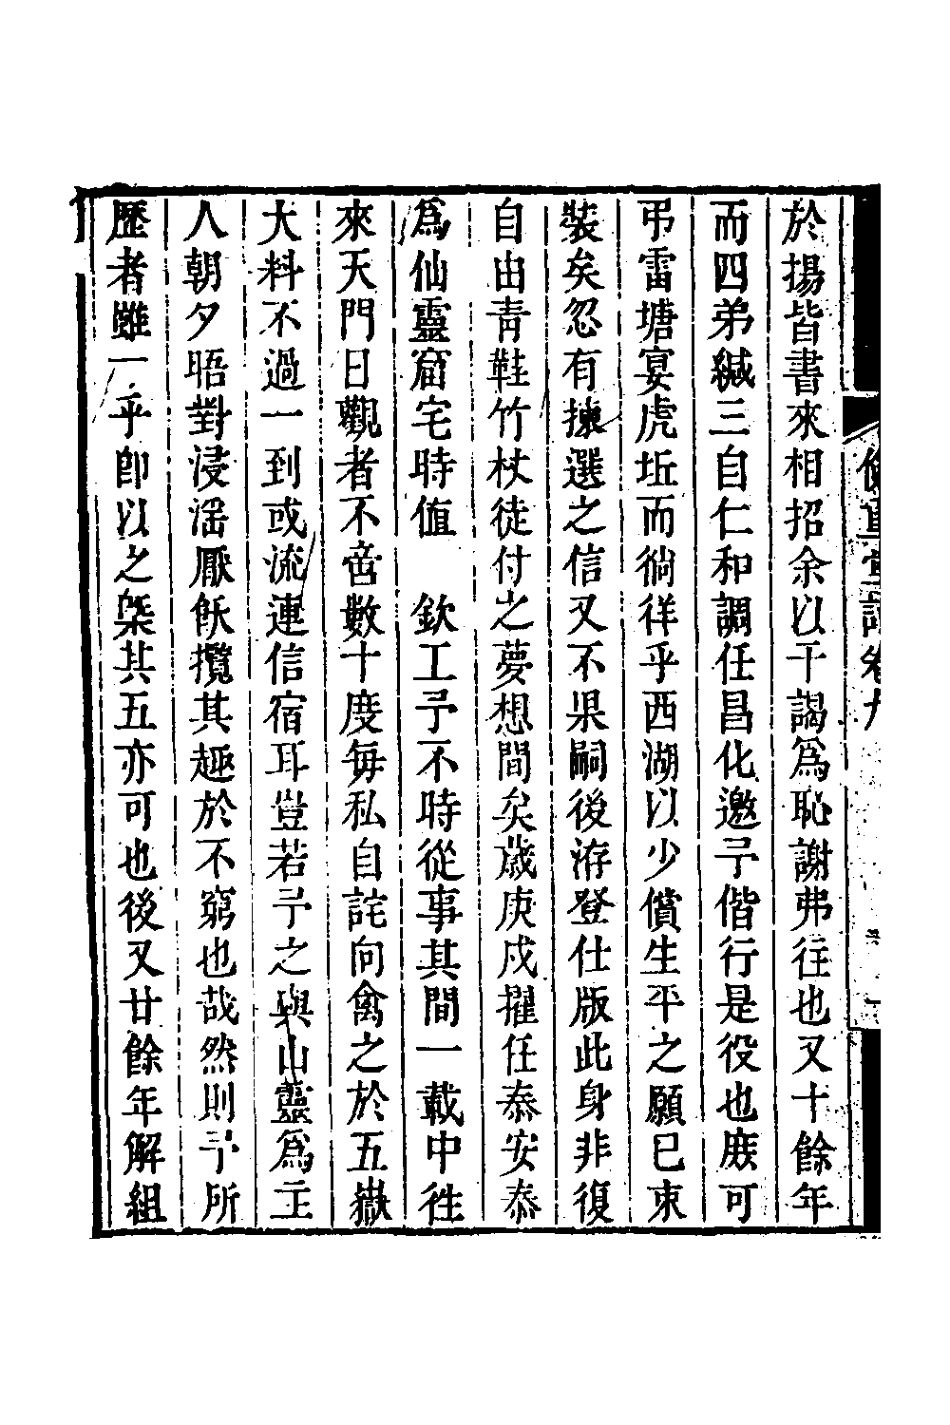 於揚皆書來相招余以干謁爲恥謝弗往也又十餘年
而四弟緘三自仁和調任昌化邀予偕行是役也庻可
弔雷塘宴虎坵而徜徉乎西湖以少償生平之願已束
裝矣忽有揀選之信又不果嗣後洊登仕版此身非復
自由靑鞋竹杖徒付之夢想間矣歲庚戍擢任泰安泰
爲仙靈窟宅時値　欽工予不時從事其間一載中徃
來天門日觀者不啻數十度每私自詫向禽之於五嶽
大料不過一到或流連信宿耳豈若予之與山靈爲主
人朝夕晤對浸淫厭飫攬其趣於不窮也哉然則予所
歷者雖一乎卽以之槩其五亦可也後又廿餘年解組